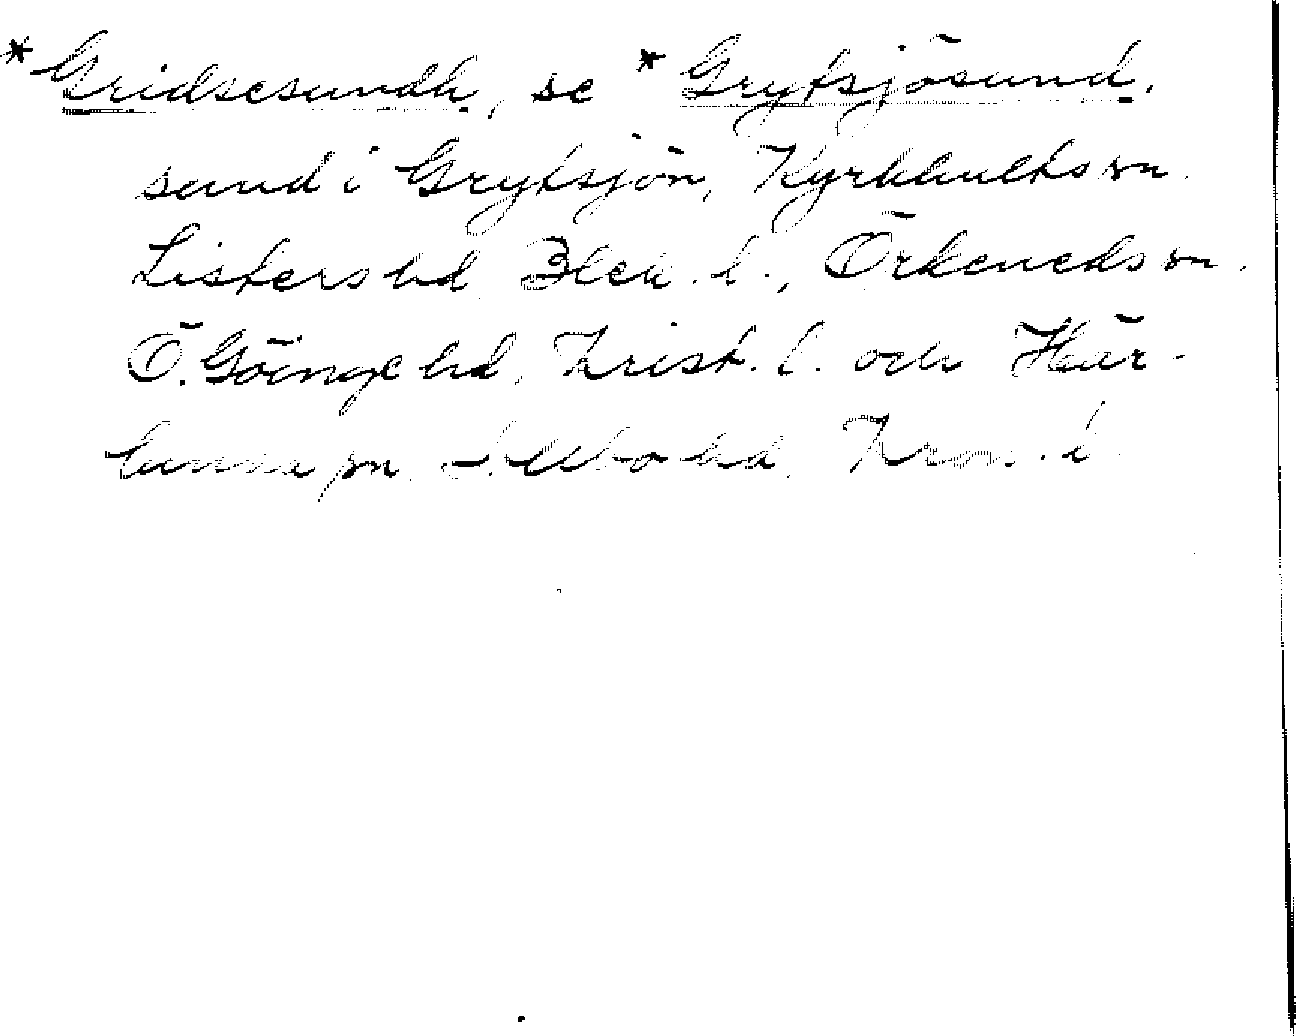 *Gridsesundh, se *Grytsjösund,
sund i Grytsjön, Kyrkhults sn.
Listers hd Blek. l., Örkeneds sn.
Ö. Göinge hd, Krist. l. och Här-
lunda sn. Allbo hd. Kron. l.